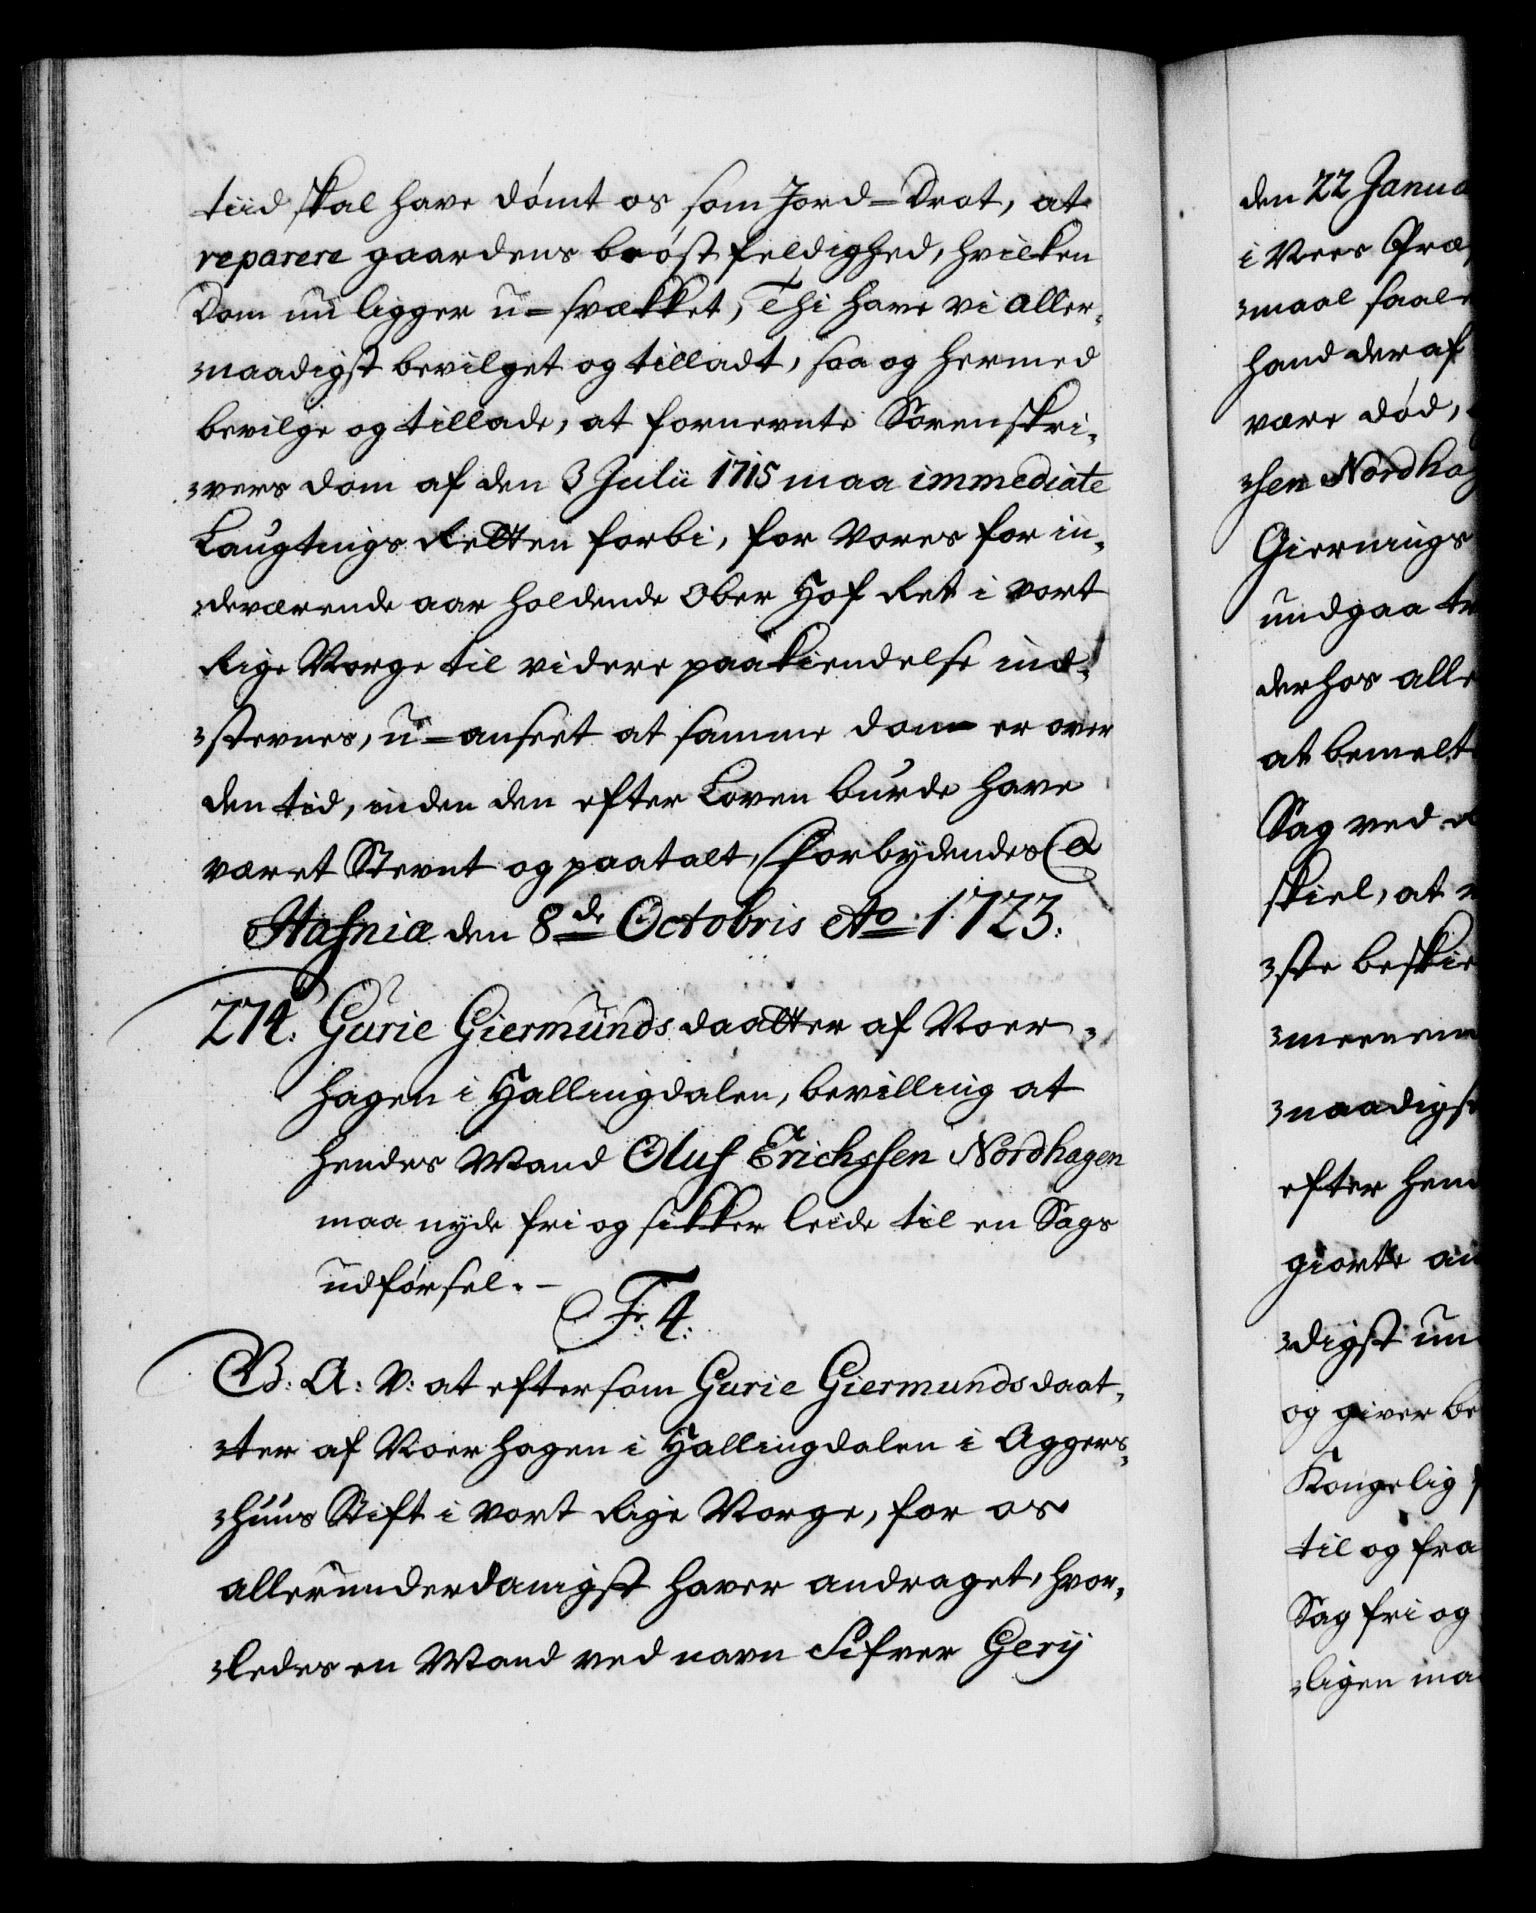 tiid skal have dømt os som Jord-Drot, at
reparere gaardens brøstfeldighed, hvilken
Dom nu ligger u-svækket, Thi have vi aller-
naadigst bevilget og tilladt, saa og hermed
bevilge og tillade, at fornevnte Sorenskri-
vers dom af den 3 Julii 1715 maa immediate
Laugtings Retten forbi, for Vores for in-
deværende aar holdende Ober Hof Ret i vort
Rige Norge til videre paakiendelse ind-
stevnes, u-anseet at samme dom er over
den tid, inden den efter Loven burde have
været Stevnt og paatalt, Forbydendes &
Hafniæ den 8de Octobris Ao 1723.
274. Gurie Giermunds daatter af Noer-
hagen i Hallingdalen, bevilling at
hendes Mand Oluf Erichssen Nordhagen
maa nyde fri og sikker leide til en Sags
udførsel. -
F: 4:
G: A: V: at eftersom Gurie Giermunds daat-
ter af Noerhagen i Hallingdalen i Aggers-
huus Stift i vort Rige Norge, for os
allerunderdanigst haver andraget, hvor-
ledes en Mand ved navn Sifver Gerij
den 22 Janua
i Nees Præ
maal saale
hand deraf
være død,
sen Nordhag
Giernings
undgaa
derhos alle
at bemelt
Sag ved
skiel, at
ste beskie
naadigst
efter hen
giorte
digst un
og giver be
Kongelig
til og fra
Sag fri og
ligen maa